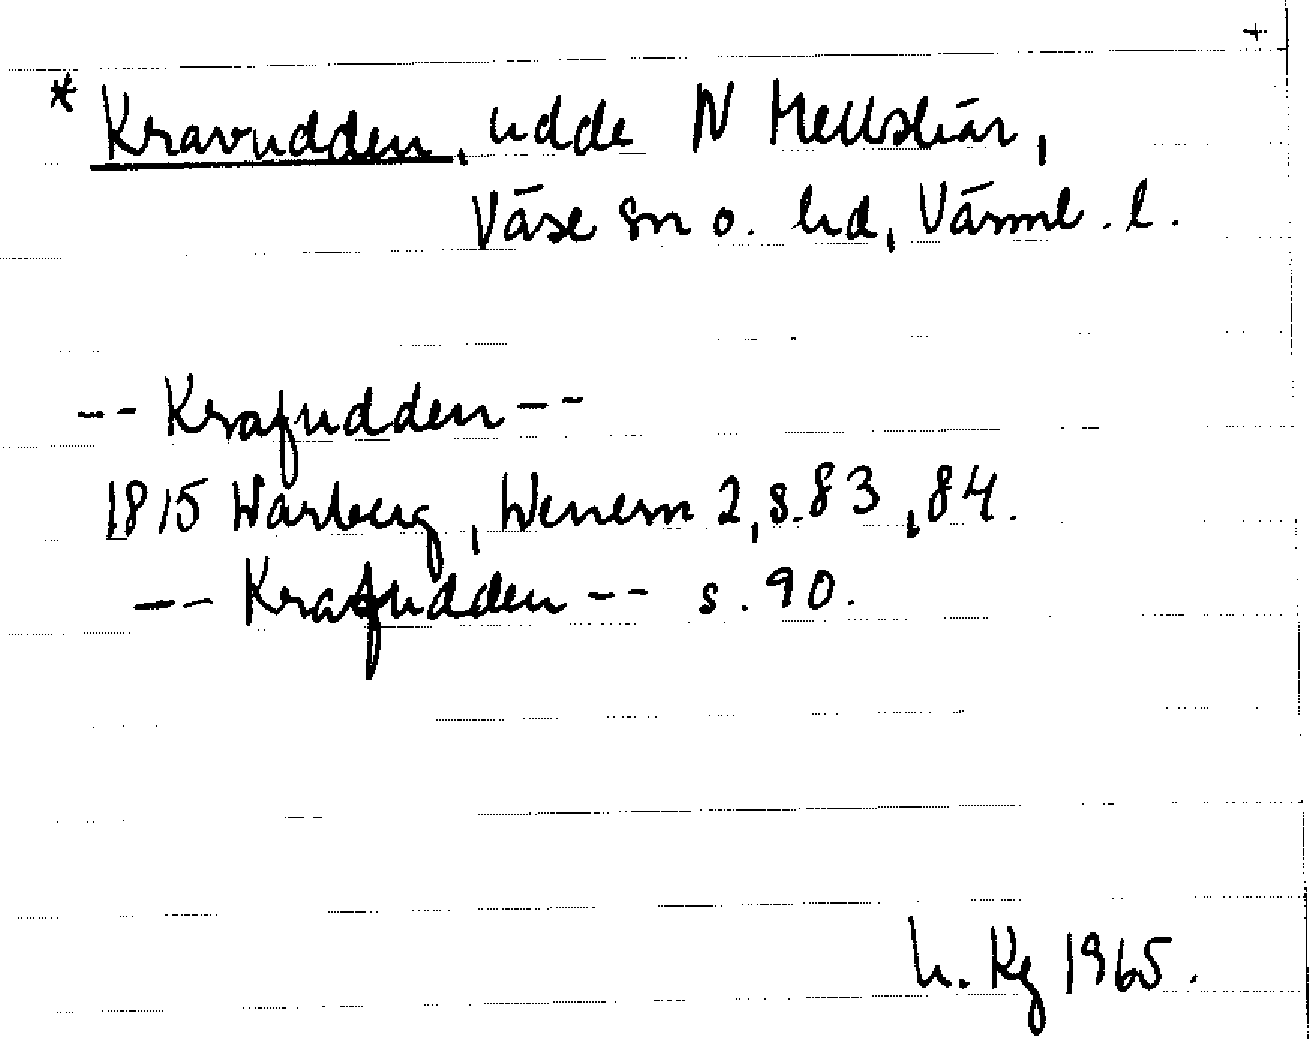 +
* Kravudden, udde N Mellskär,
Väse sn o. hd, Värml. l.
-- Krafudden --
1815 Warberg, Wenern 2, s. 83, 84.
-- Krafudden -- s. 90.
h. Kg 1965.